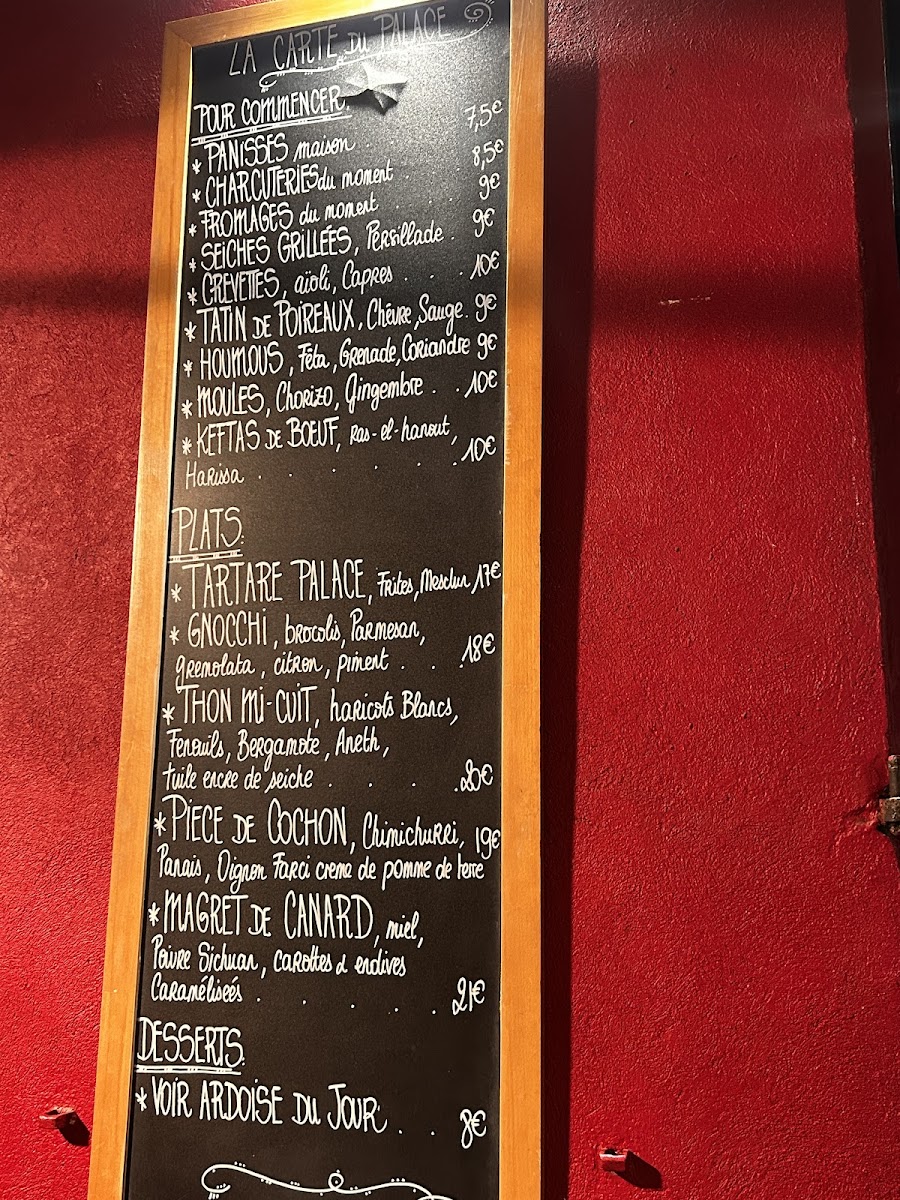 LA CARTE DU PALACE
POUR COMMENCER:
* PANISSES maison . 7,5€
* CHARCUTERIES du moment . 8,5€
* FROMAGES du moment . . . . 9€
* SEICHES GRILLÉES, Persillade . 9€
* CREVETTES, aïoli, Capres . . . 10€
* TATIN DE POIREAUX, Chèvre, Sauge. 9€
* HOUMOUS, Féta, Grenade, Coriandre 9€
* MOULES, Chorizo, Gingembre . . 10€
* KEFTAS DE BOEUF, Ras-el-hanout,
Harissa . . . . . . 10€
PLATS:
* TARTARE PALACE, Frites, Mesclun, 17€
* GNOCCHI, brocolis, Parmesan,
gremolata, citron, piment . . . 18€
* THON MI-CUIT, haricots Blancs,
Fenouils, Bergamote, Aneth,
tuile encre de seiche . . . . . 20€
* PIECE DE COCHON, Chimichurri, 19€
Panais, Oignon Farci creme de pomme de terre
* MAGRET DE CANARD, miel,
Poivre Sichuan, carottes & endives
Caraméliseés . . . . . 21€
DESSERTS:
* VOIR ARDOISE DU JOUR: . . 8€